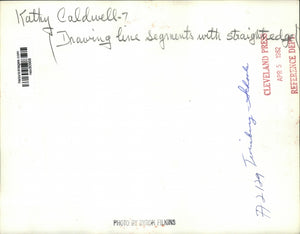 Kathy Caldwell-7
Drawing line segments with straight edge
CLEVELAND PRESS
APR 5 1962
REFERENCE DEPT
PHOTO BY
FILKINS